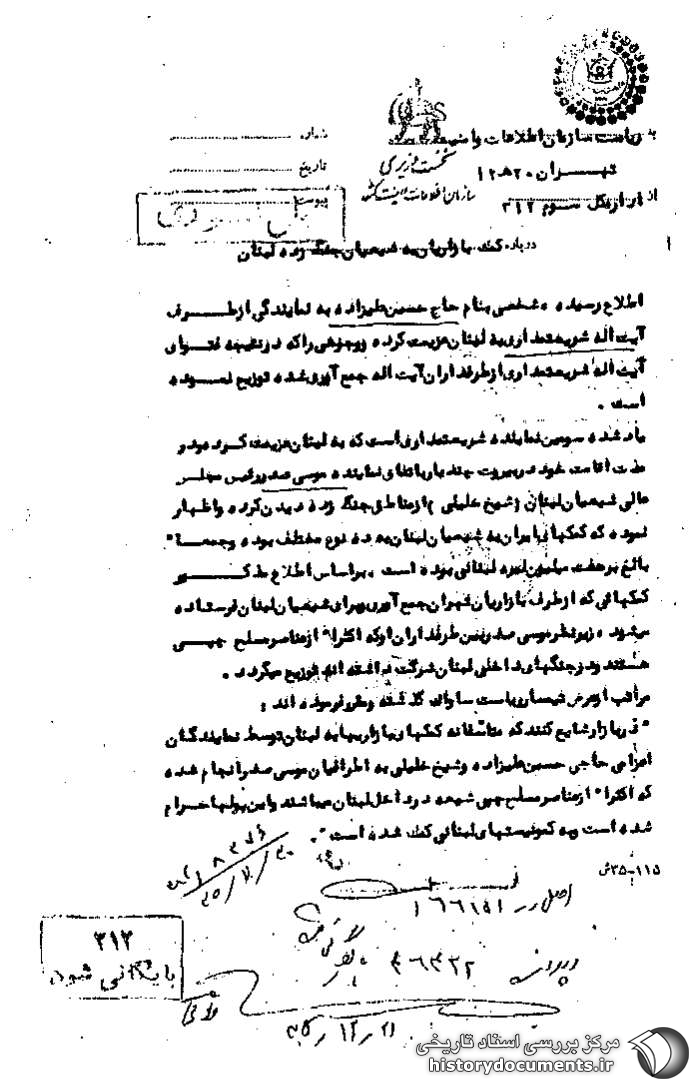 به ریاست سازمان اطلاعات و امنیت
تهران ۲۰ هـ ۱۲
از اداره کل سوم ۳۱۲
نخست وزیری
سازمان اطلاعات و امنیت کشور
شماره
تاریخ
پیوست
درباره کمک بازاریان به شیعیان جنگ زده لبنان
اطلاع رسیده شخصی بنام حاج حسین علیزاده به نمایندگی از طرف
آیت اله شریعتمداری به لبنان عزیمت کرده و وجوهی را که در نتیجه فتوای
آیت اله شریعتمداری از طرفداران آیت اله جمع آوری شده توزیع نموده
است .
یاد شده سومین نماینده شریعتمداری است که به لبنان عزیمت کرده و در
مدت اقامت خود در بیروت چند بار با تفاق نماینده موسی صدر رئیس مجلس
عالی شیعیان لبنان ( شیخ خلیلی ) از مناطق جنگ زده دیدن کرده و اظهار
نموده که کمکهای ایران به شیعیان لبنان به ده نوع مختلف بوده و جمعا"
بالغ بر هفت میلیون لیره لبنانی بوده است . براساس اطلاع مذکور
کمکهائی که از طرف بازاریان تهران جمع آوری و برای شیعیان لبنان فرستاده
میشود ، زیر نظر موسی صدر و بین طرفداران او که اکثرا" از عناصر مسلح چپی
هستند و در جنگهای داخلی لبنان شرکت داشته اند توزیع میگردد .
مراتب از عرض تیمسار ریاست ساواک گذشته و مقرر فرموده اند :
" در بازار شایع کنند که متاسفانه کمکهای بازاریها به لبنان توسط نمایندگان
اعزامی حاجی حسین علیزاده و شیخ خلیلی به اطرافیان موسی صدر انجام شده
که اکثرا" از عناصر مسلح چپی شیعه در داخل لبنان میباشند و این پولها حرام
شده است و به کمونیستهای لبنانی کمک شده است " .
۳۵-۱۱۵ش
اصل در ۱۶۶۱۵۱
۳۱۲
بایگانی شود
۳۵/۱۲/۲۱
مرکز بررسی اسناد تاریخی
historydocuments.ir